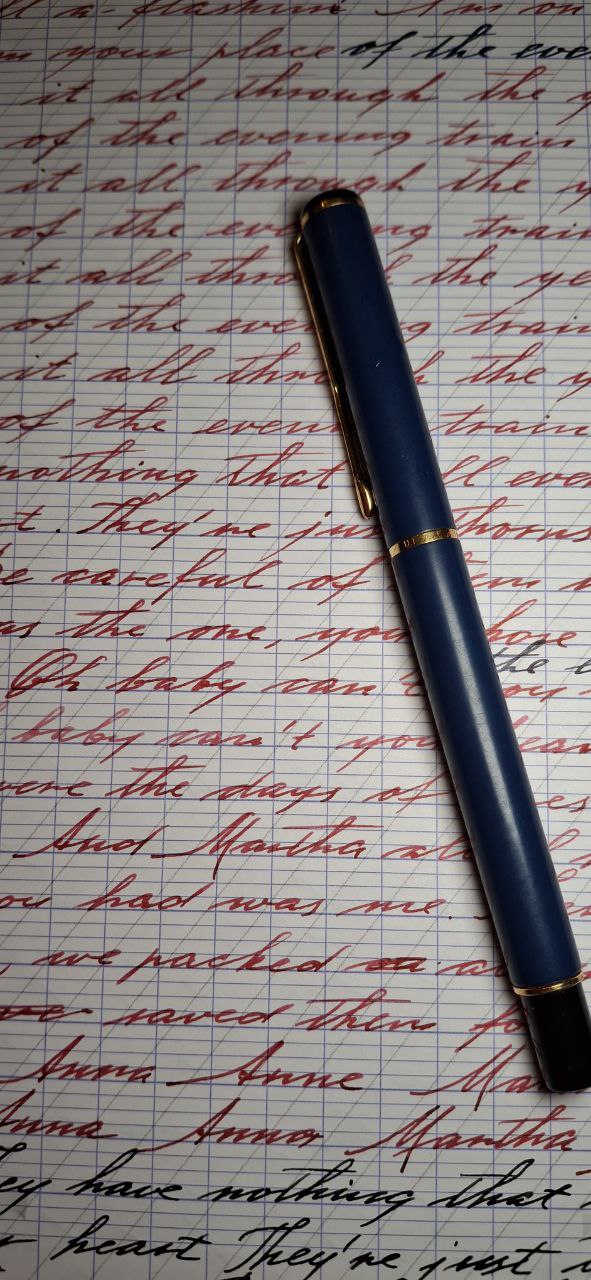 a-flashin' I'm on
your place of the eve
it all through the y
of the evening train
it all through the y
of the eve ng train
it all thro the ye
of the eve g train
it all thr h the y
of the even train
nothing that ll eve
t. They're jus thorns
Be careful of
as the one, you hope
the
Oh baby can't you
baby can't you hear
were the days of es
And Martha
ou had was me.
, we packed
saved them fo
Anna Anne Ma
Anna Anna Martha
ey have nothing that
heart They're just